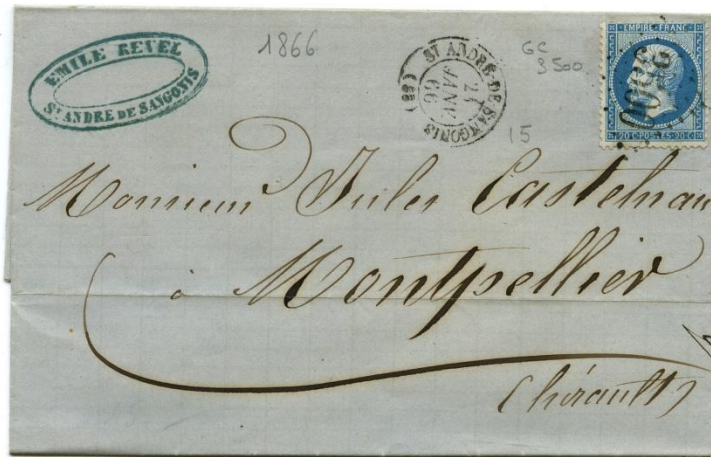 EMILE REVEL
ST ANDRE DE SANGONIS
1866
ST ANDRE-DE-SANGONIS
JANV
66
GC
3500
15
EMPIRE FRANC
20 C POSTES 20 C
Monsieur Jules Castelnau
à Montpellier
(hérault)